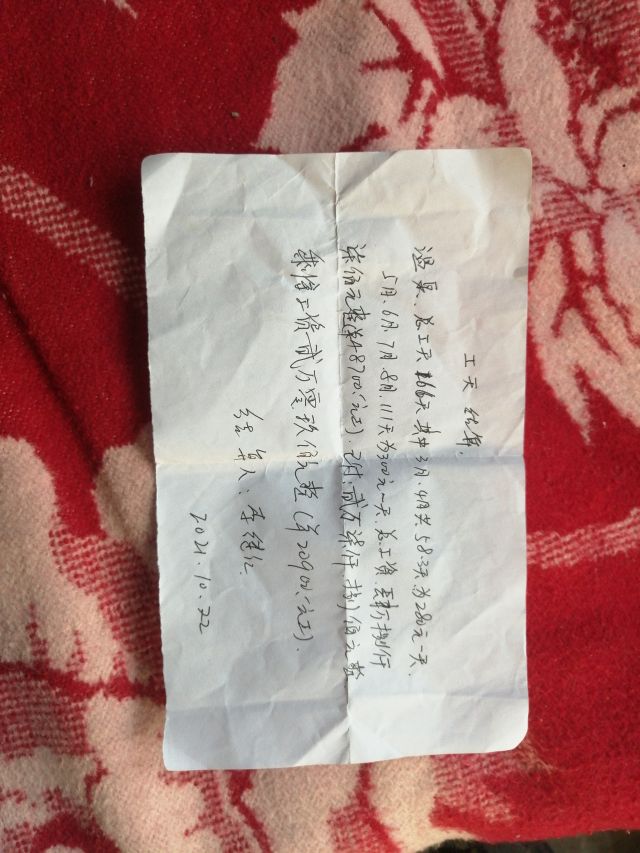 工天结算.
温泉、总工天166天 其中3月.4月共58.3天为280元一天.
5月.6月.7月.8月.111天为300元一天.总工资.肆万捌仟
柒佰元整(¥48700:元正) 已付:贰万柒仟捌佰元整
剩馀工资贰万零玖佰元整(¥20900:元正).
结算人:李继仁
2021.10.22